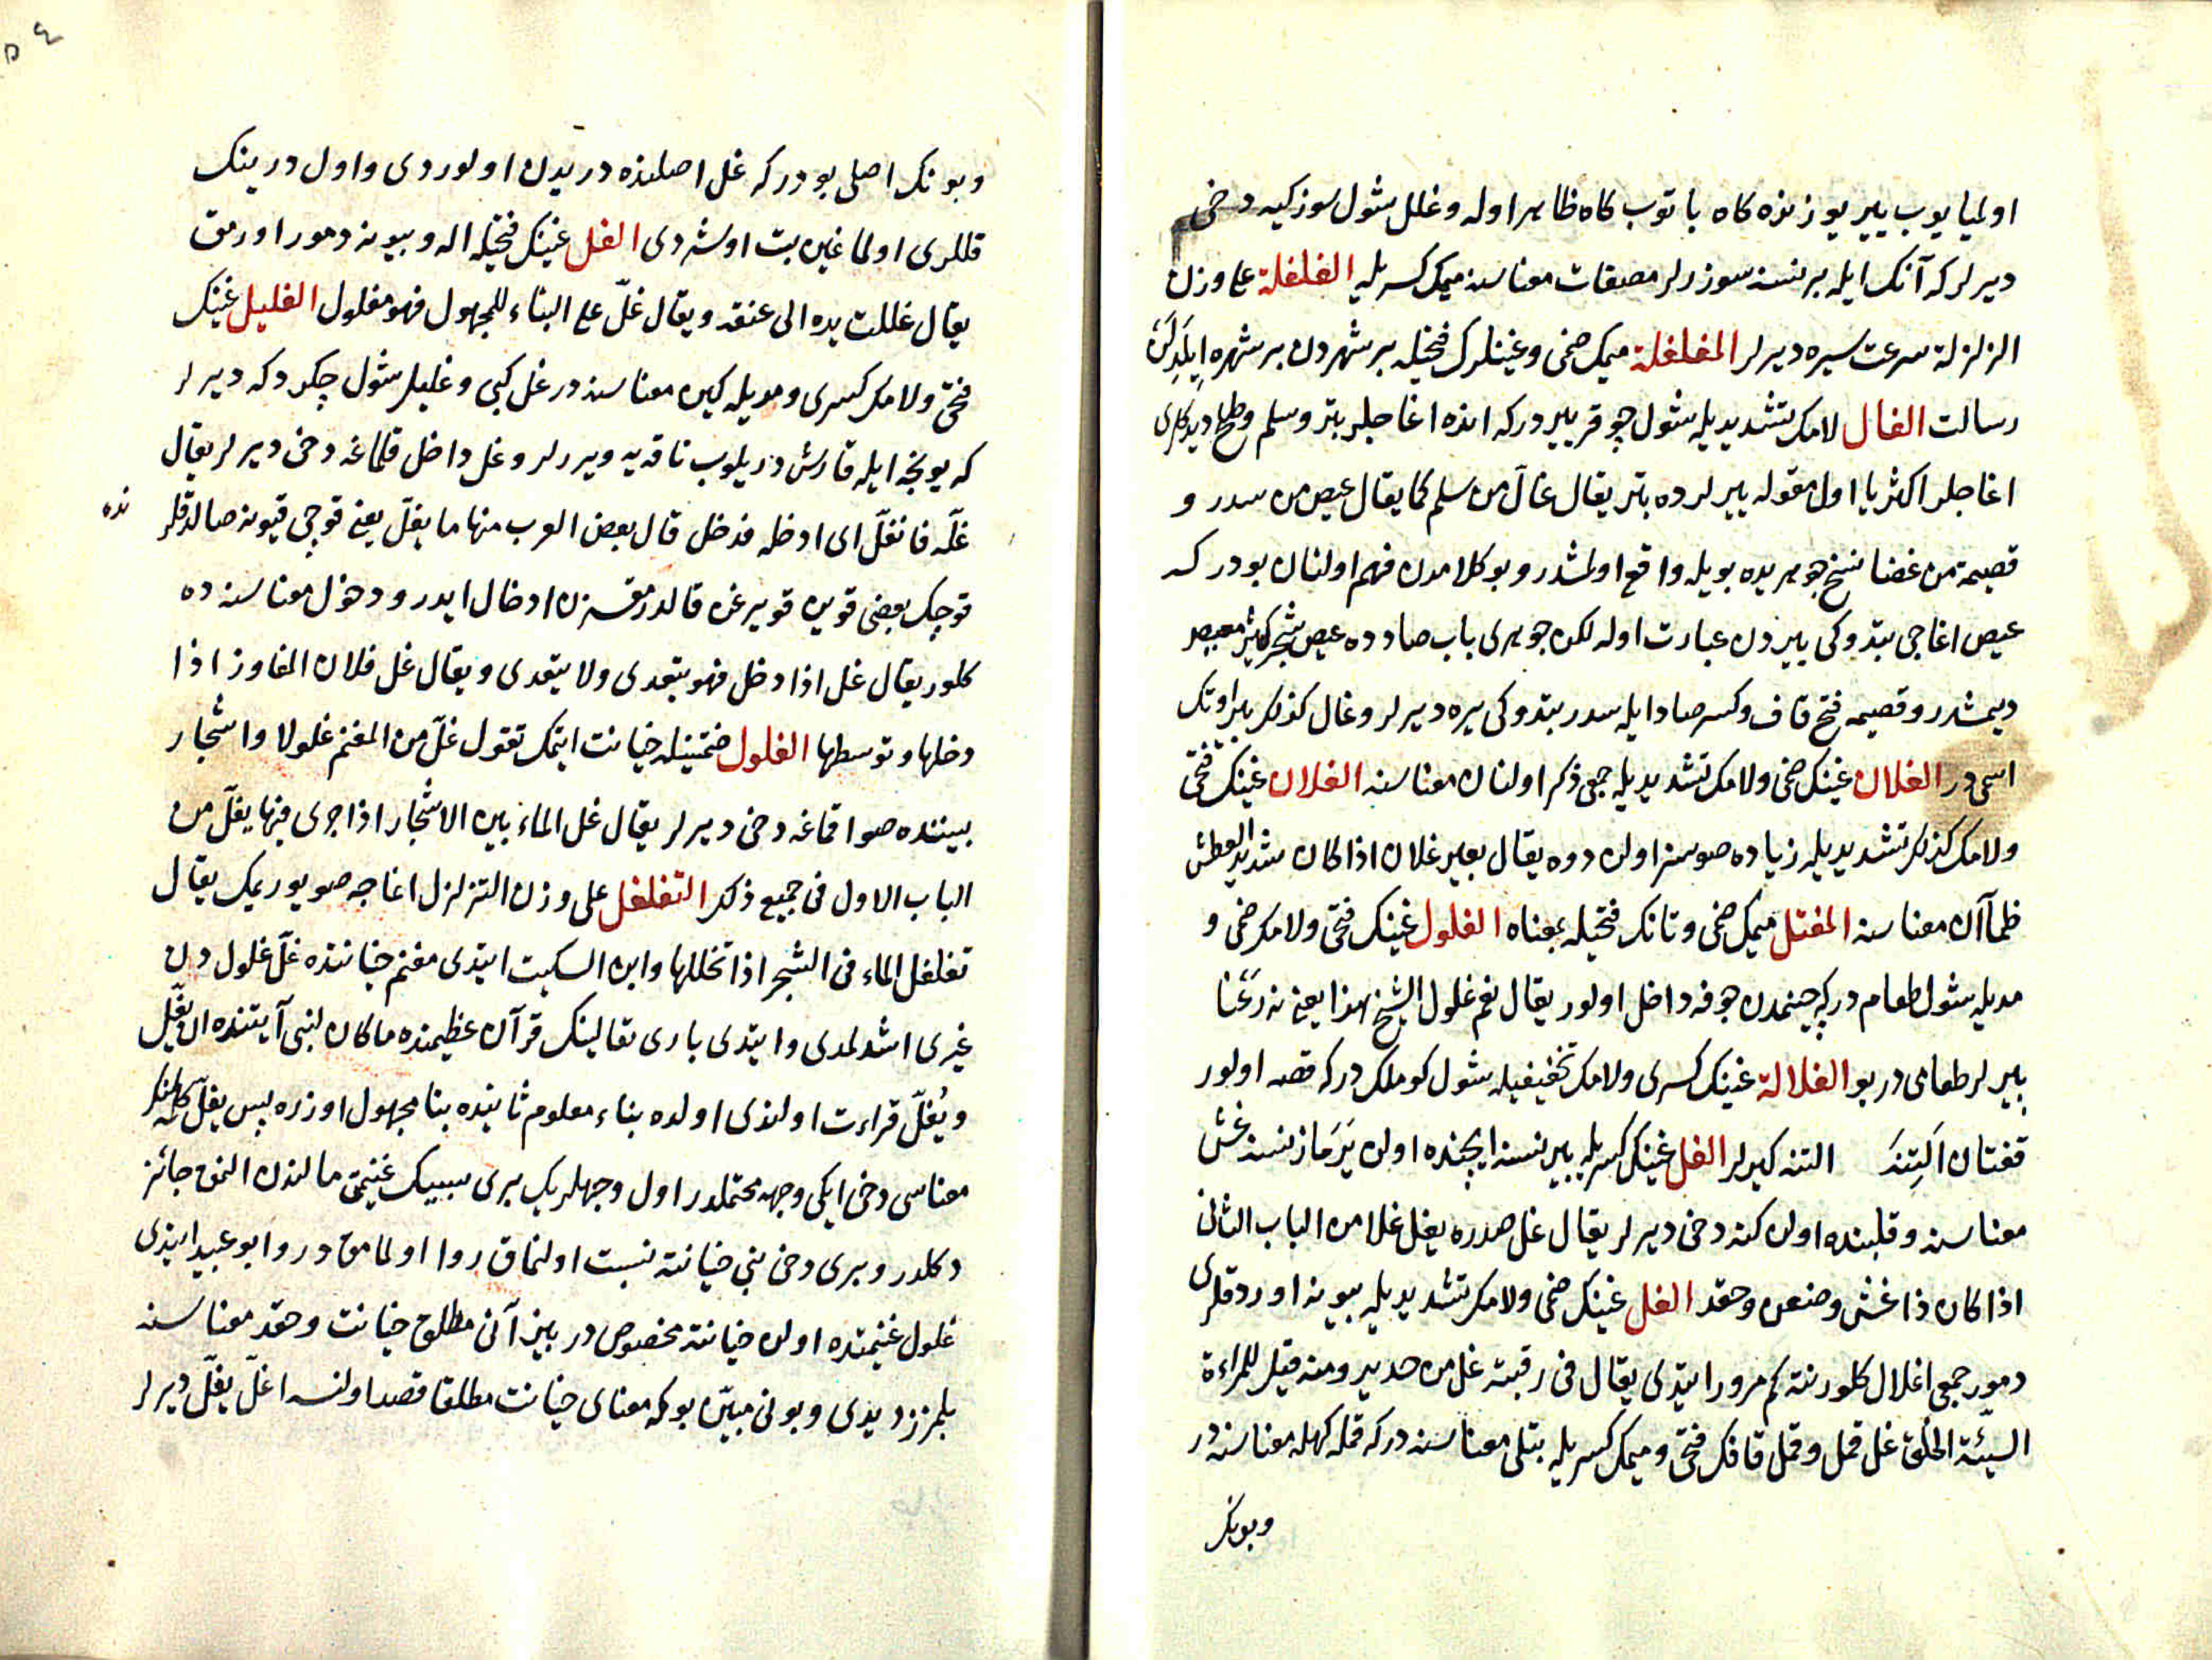 اولميا يوب يير يوزنده كاه ياتوب كاه ظاهر اوله وغلل شول سوزكيه دخى
ديرلر كه آنك ايله بر نسنه سوزرلر مصفات معناسنه ميمك كسريله الغلغلة على وزن
الزلزلة سرعت سيره ديرلر المغلغلة ميمك ضمى وغينلرك فتحيله بر شهردن بر شهره ايلدلن
رسالت الغال لامك تشديديله شول چوقر ييردركه انده اغاجلر بتر وسلم وطلح ديدكلرى
اغاجلر اكثريا اول مقوله ييرلرده بتر يقال غالّ من سلم كما يقال عيص من سدر و
قصيمة من غضا نسخ جوهريده بويله واقع اولمشدر وبو كلامدن فهم اولنان بودركه
عيص اغاجى بتدوكى ييردن عبارت اوله لكن جوهرى باب صادده عيص شجر كثير
ديمشدر وقصيمه فتح قاف وكسر صاد ايله سدر بتدوكى يره ديرلر وغال كذلك بر اوتك
اسمى در الغلان غينك ضمى ولامك تشديديله جمعى ذكر اولنان معناسنه الغلان غينك فتحى
ولامك كذلك تشديديله زياده صوسز اولن دوه يقال بعير غلان اذا كان شديد العطش
ظمآن معناسنه المغتل ميمك ضمى وتانك فتحيله بمعناه الغلول غينك فتحى ولامك ضمى و
مديله شول طعام دركه چينمدن جوفه داخل اولور يقال نعم غلول الشيخ هذا يعنى نه رعنا
پيرلر طعامى در بو الغلالة غينك كسرى ولامك تخفيفيله شول كوملك دركه قصه اولور
قفتان التنه التنه كيرلر الغل غينك كسريله بير نسنه ايچنده اولن يرماز نسنه غش
معناسنه وقلبنده اولن كنه دخى ديرلر يقال غل صدره يغل غلا من الباب الثانى
اذا كان ذا غش وضغن وحقد الغل غينك ضمى ولامك تشديديله بيوينه اوردقلرى
دمور جمعى اغلال كلور نته كم مرور ايتدى يقال فى رقبته غل من حديد ومنه قيل للمراءة
السيّئة الخلق غل قمل وقمل قافك فتحى وميمك كسريله بتلى معناسنه دركه قمله كهله معناسنه در
وبونك
وبونك اصلى بودركه غل اصلنده دريدن اولوردى واول درينك
قللرى اولماغين بت اوشردى الغل غينك فتحيله اله وبيوينه دمور اورمق
يقال غللت يده الى عنقه ويقال غلّ على البناء للمجهول فهو مغلول الغليل غينك
فتحى ولامك كسرى ومديله كين معناسنه در غل كبى وغليل شول چكردكه ديرلر
كه يونجه ايله قارشدريلوب ناقه يه ويررلر وغل داخل قلماغه دخى ديرلر يقال
غلّه فانغلّ اى ادخله فدخل قال بعض العرب منها ما يغلّ يعنى قوچى قيونه صالدقلرنده
قوچك بعضى قوين قويرغن قالدرمقسزن ادخال ايدر ودخول معناسنه ده
كلور يقال غل اذا دخل فهو يتعدى ولا يتعدى ويقال غل فلان المفاوز اذا
دخلها وتوسطها الغلول ضمتينله خيانت ايتمك تقول غلّ من المغنم غلولا واشجار
بيننده صو اقماغه دخى ديرلر يقال غل الماء بين الاشجار اذا جرى فيها يغلّ من
الباب الاول فى جميع ذلك التغلغل على وزن التزلزل اغاجه صو يوريمك يقال
تغلغل الماء فى الشجر اذا تخللها وابن السكيت ايتدى مغنم خيانتنده غلّ غلول دن
غيرى اشدلمدى وايتدى بارى تعالينك قرآن عظيمنده ما كان لنبى آيتنده ان يغلّ
ويُغلّ قراءت اولندى اولده بناء معلوم ثانيده بنا مجهول اوزره پس يغلّ كلمه سنك
معناسى دخى ايكى وجهه محتملدر اول وجهلريك برى سببيك غنيمتى مالندن المق جائز
دكلدر وبرى دخى نبى خيانته نسبت اولنماق روا اولمامق در وابو عبيد ايتدى
غلول غنيمتده اولن خيانته مخصوص در بيز آنى مطلق خيانت وحقد معناسنه
بلمزز ديدى وبونى مبيّن بوكه معناى خيانت مطلقا قصد اولنسه اغلّ يغلّ ديرلر